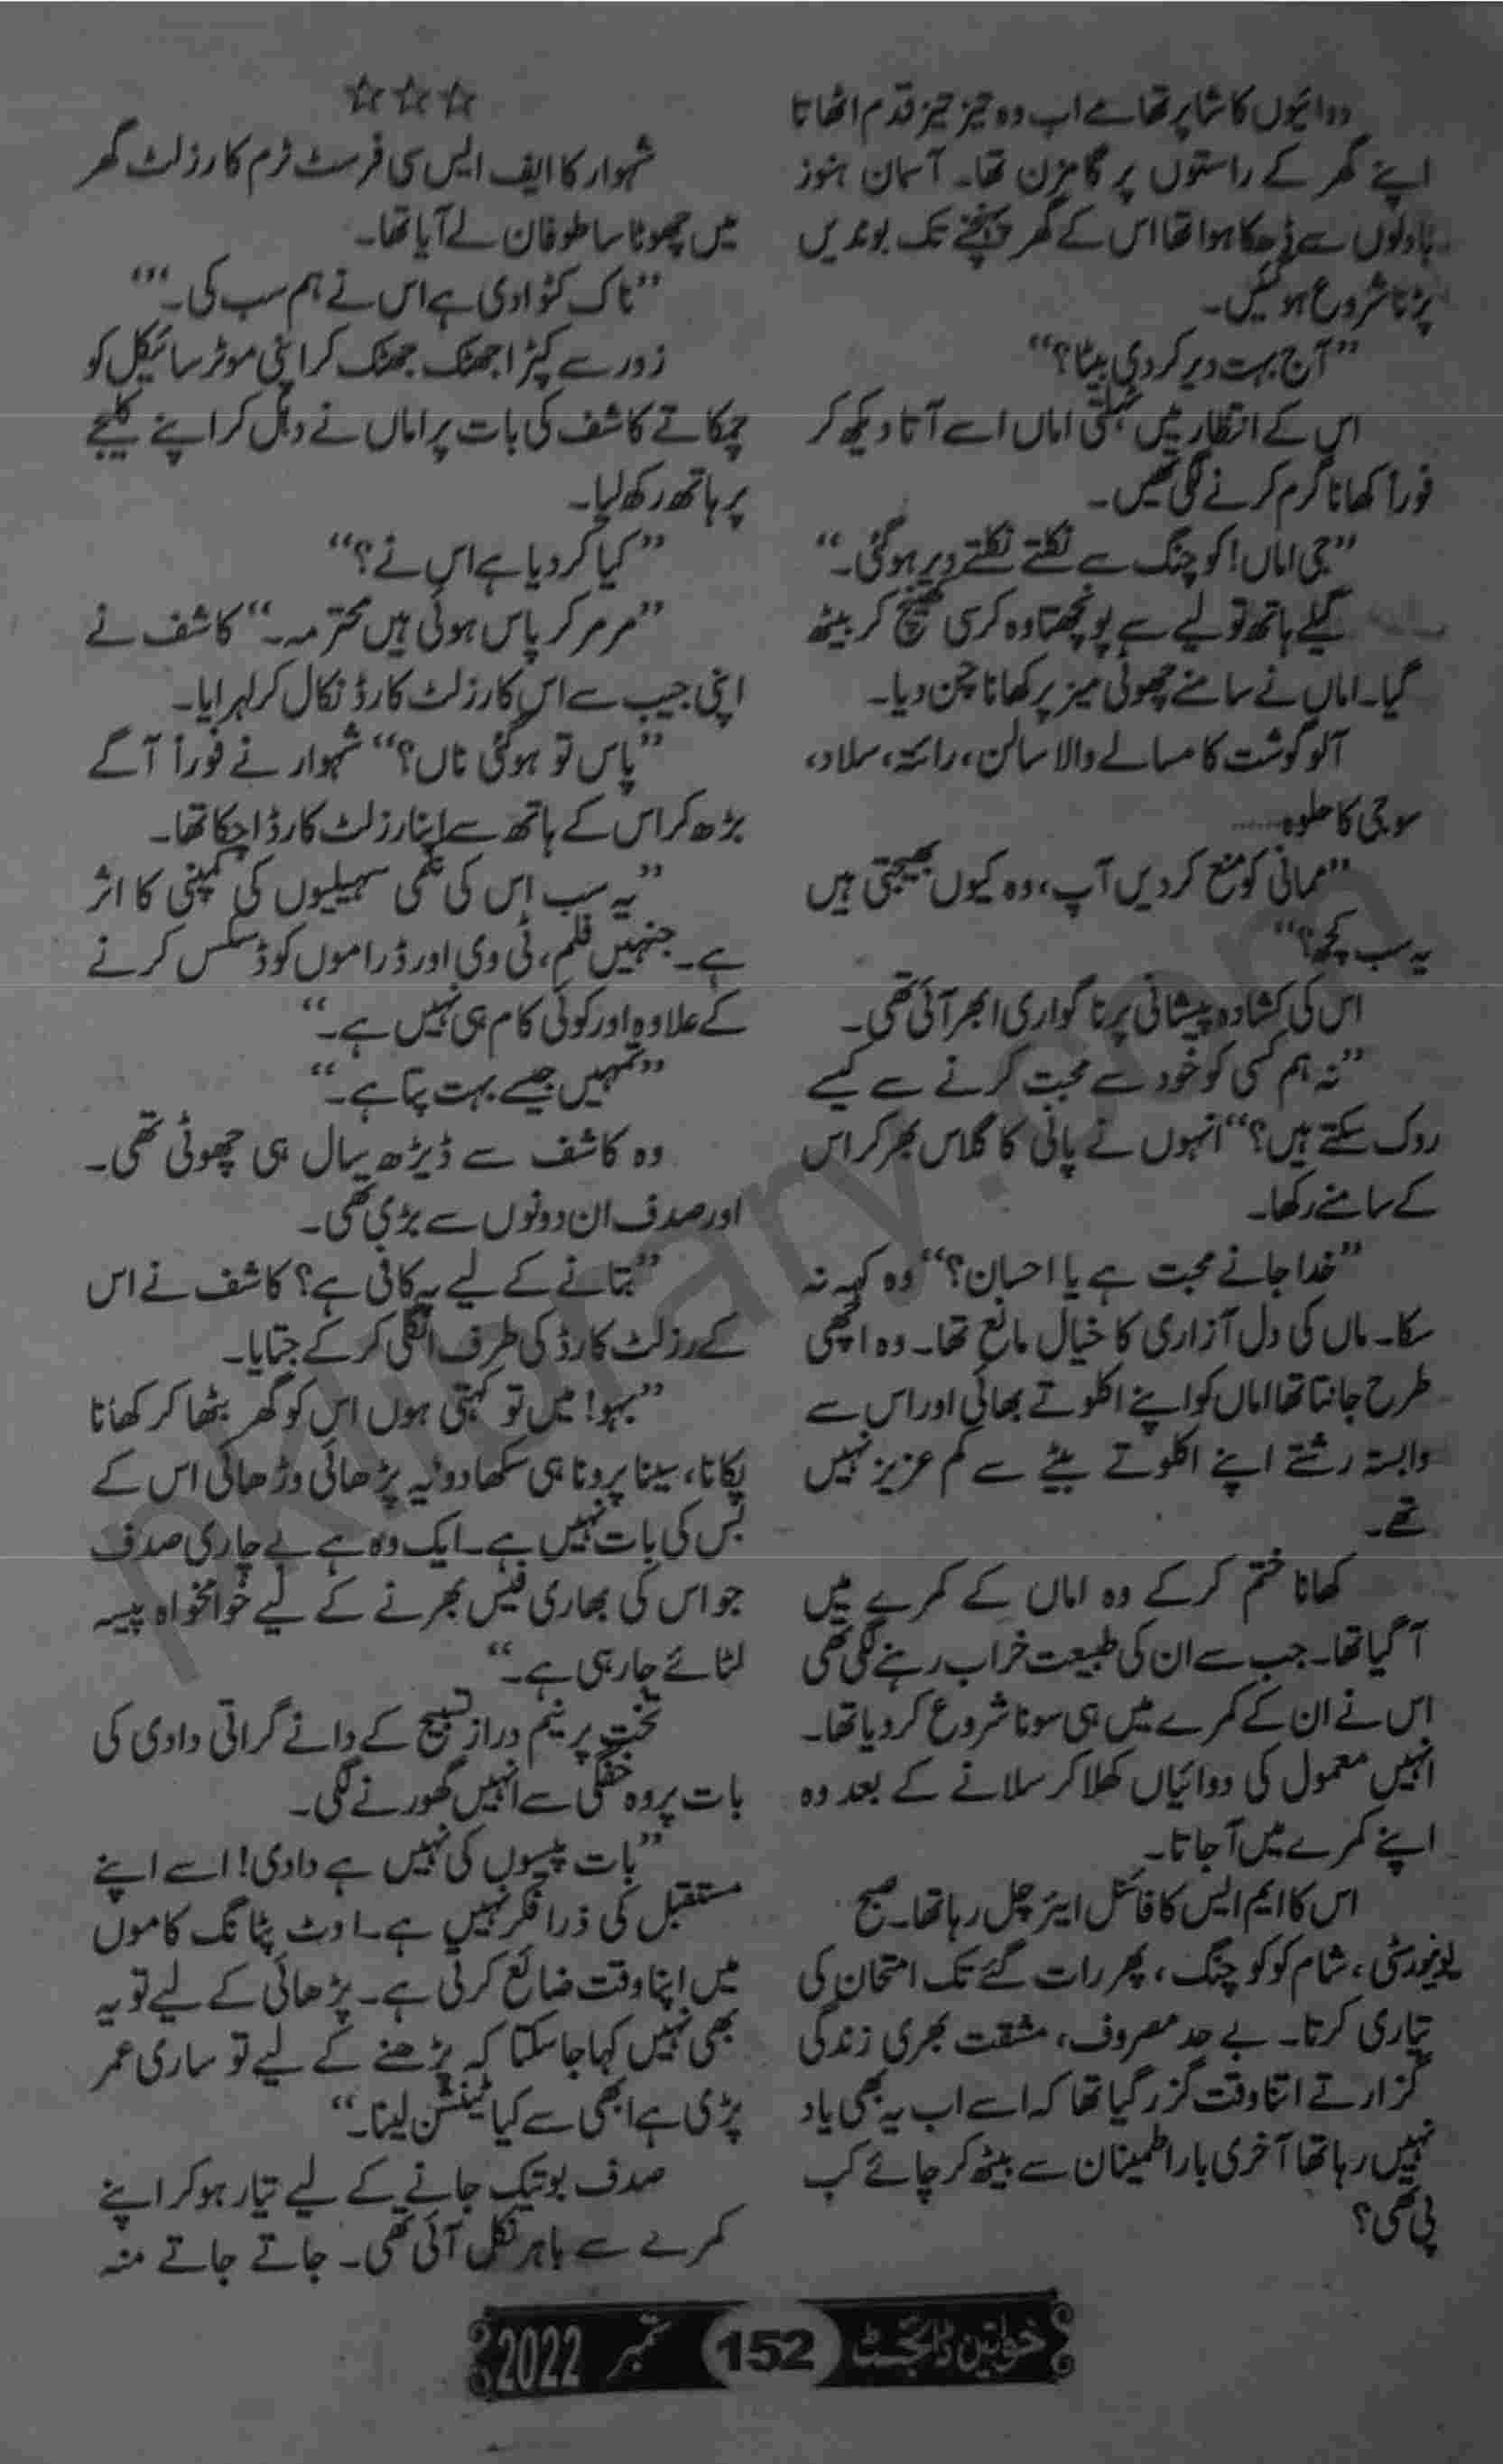 دوائیوں کا شاپر تھامے اب وہ تیز تیز قدم اٹھاتا
اپنے گھر کے راستوں پر گامزن تھا۔ آسمان ہنوز
بادلوں سے ڈھکا ہوا تھا اس کے گھر پہنچنے تک بوندیں
پڑنا شروع ہو گئیں۔
”آج بہت دیر کر دی بیٹا؟“
اس کے انتظار میں ٹہلتی اماں اسے آتا دیکھ کر
فوراً کھانا گرم کرنے لگی تھیں۔
”جی اماں! کوچنگ سے نکلتے نکلتے دیر ہو گئی۔“
گیلے ہاتھ تولیے سے پونچھتا وہ کرسی کھینچ کر بیٹھ
گیا۔ اماں نے سامنے چھوٹی میز پر کھانا چن دیا۔
آلو گوشت کا مسالے والا سالن، رائتہ، سلاد،
سوجی کا حلوہ......
”ممانی کو منع کر دیں آپ، وہ کیوں بھیجتی ہیں
یہ سب کچھ؟“
اس کی کشادہ پیشانی پر ناگواری ابھر آئی تھی۔
”نہ ہم کسی کو خود سے محبت کرنے سے کیسے
روک سکتے ہیں؟“ انہوں نے پانی کا گلاس بھر کر اس
کے سامنے رکھا۔
”خدا جانے محبت ہے یا احسان؟“ وہ کہہ نہ
سکا۔ ماں کی دل آزاری کا خیال مانع تھا۔ وہ اچھی
طرح جانتا تھا اماں کو اپنے اکلوتے بھائی اور اس سے
وابستہ رشتے اپنے اکلوتے بیٹے سے کم عزیز نہیں
تھے۔
کھانا ختم کر کے وہ اماں کے کمرے میں
آ گیا تھا۔ جب سے ان کی طبیعت خراب رہنے لگی تھی
اس نے ان کے کمرے میں ہی سونا شروع کر دیا تھا۔
انہیں معمول کی دوائیاں کھلا کر سلانے کے بعد وہ
اپنے کمرے میں آ جاتا۔
اس کا ایم ایس کا فائنل ایئر چل رہا تھا۔ صبح
یونیورسٹی، شام کو کوچنگ، پھر رات گئے تک امتحان کی
تیاری کرتا۔ بے حد مصروف، مشقت بھری زندگی
گزارتے اتنا وقت گزر گیا تھا کہ اسے اب یہ بھی یاد
نہیں رہا تھا آخری بار اطمینان سے بیٹھ کر چائے کب
پی تھی؟
☆☆☆
شہوار کا ایف ایس سی فرسٹ ٹرم کا رزلٹ گھر
میں چھوٹا سا طوفان لے آیا تھا۔
”ناک کٹوا دی ہے اس نے ہم سب کی۔“
زور سے کپڑا جھٹک جھٹک کر اپنی موٹر سائیکل کو
چمکاتے کاشف کی بات پر اماں نے دہل کر اپنے کلیجے
پر ہاتھ رکھ لیا۔
”کیا کر دیا ہے اس نے؟“
”مر مر کر پاس ہوئی ہیں محترمہ۔“ کاشف نے
اپنی جیب سے اس کا رزلٹ کارڈ نکال کر لہرایا۔
”پاس تو ہو گئی ناں؟“ شہوار نے فوراً آگے
بڑھ کر اس کے ہاتھ سے اپنا رزلٹ کارڈ اچکا تھا۔
”یہ سب اس کی نکمی سہیلیوں کی کمپنی کا اثر
ہے۔ جنہیں فلم، ٹی وی اور ڈراموں کو ڈسکس کرنے
کے علاوہ اور کوئی کام ہی نہیں ہے۔“
”تمہیں جیسے بہت پتا ہے۔“
وہ کاشف سے ڈیڑھ سال ہی چھوٹی تھی۔
اور صدف ان دونوں سے بڑی تھی۔
”بتانے کے لیے یہ کافی ہے؟ کاشف نے اس
کے رزلٹ کارڈ کی طرف انگلی کر کے جتایا۔
”بہو! میں تو کہتی ہوں اس کو گھر بٹھا کر کھانا
پکانا، سینا پرونا ہی سکھا دو یہ پڑھائی وڑھائی اس کے
بس کی بات نہیں ہے۔ ایک وہ ہے بے چاری صدف
جو اس کی بھاری فیس بھرنے کے لیے خوامخواہ پیسہ
لٹائے جا رہی ہے۔“
تخت پر نیم دراز تسبیح کے دانے گراتی دادی کی
بات پر وہ خفگی سے انہیں گھورنے لگی۔
”بات پیسوں کی نہیں ہے دادی! اسے اپنے
مستقبل کی ذرا فکر نہیں ہے۔ اوٹ پٹانگ کاموں
میں اپنا وقت ضائع کرتی ہے۔ پڑھائی کے لیے تو یہ
بھی نہیں کہا جا سکتا کہ پڑھنے کے لیے تو ساری عمر
پڑی ہے ابھی سے کیا ٹینشن لینا۔“
صدف بوتیک جانے کے لیے تیار ہو کر اپنے
کمرے سے باہر نکل آئی تھی۔ جاتے جاتے منہ
خواتین ڈائجسٹ 152 ستمبر 2022
pklibrary.com